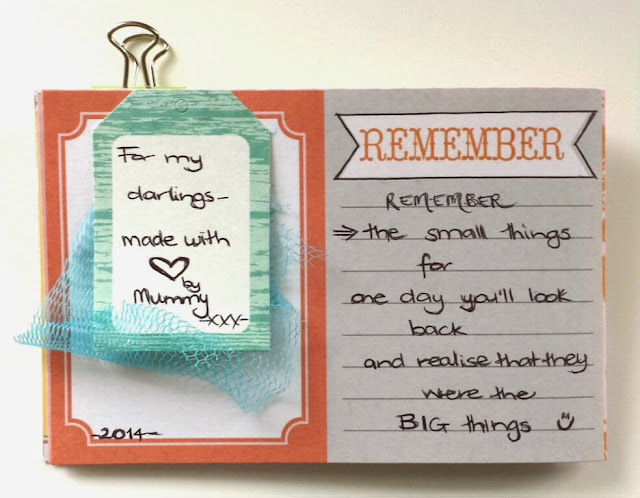 For my
darlings-
made with
by
Mummy
-xxx-
-2014-
REMEMBER
REMEMBER
⇒ the small things
for
one day you'll look
back
and realise that they
were the
BIG things